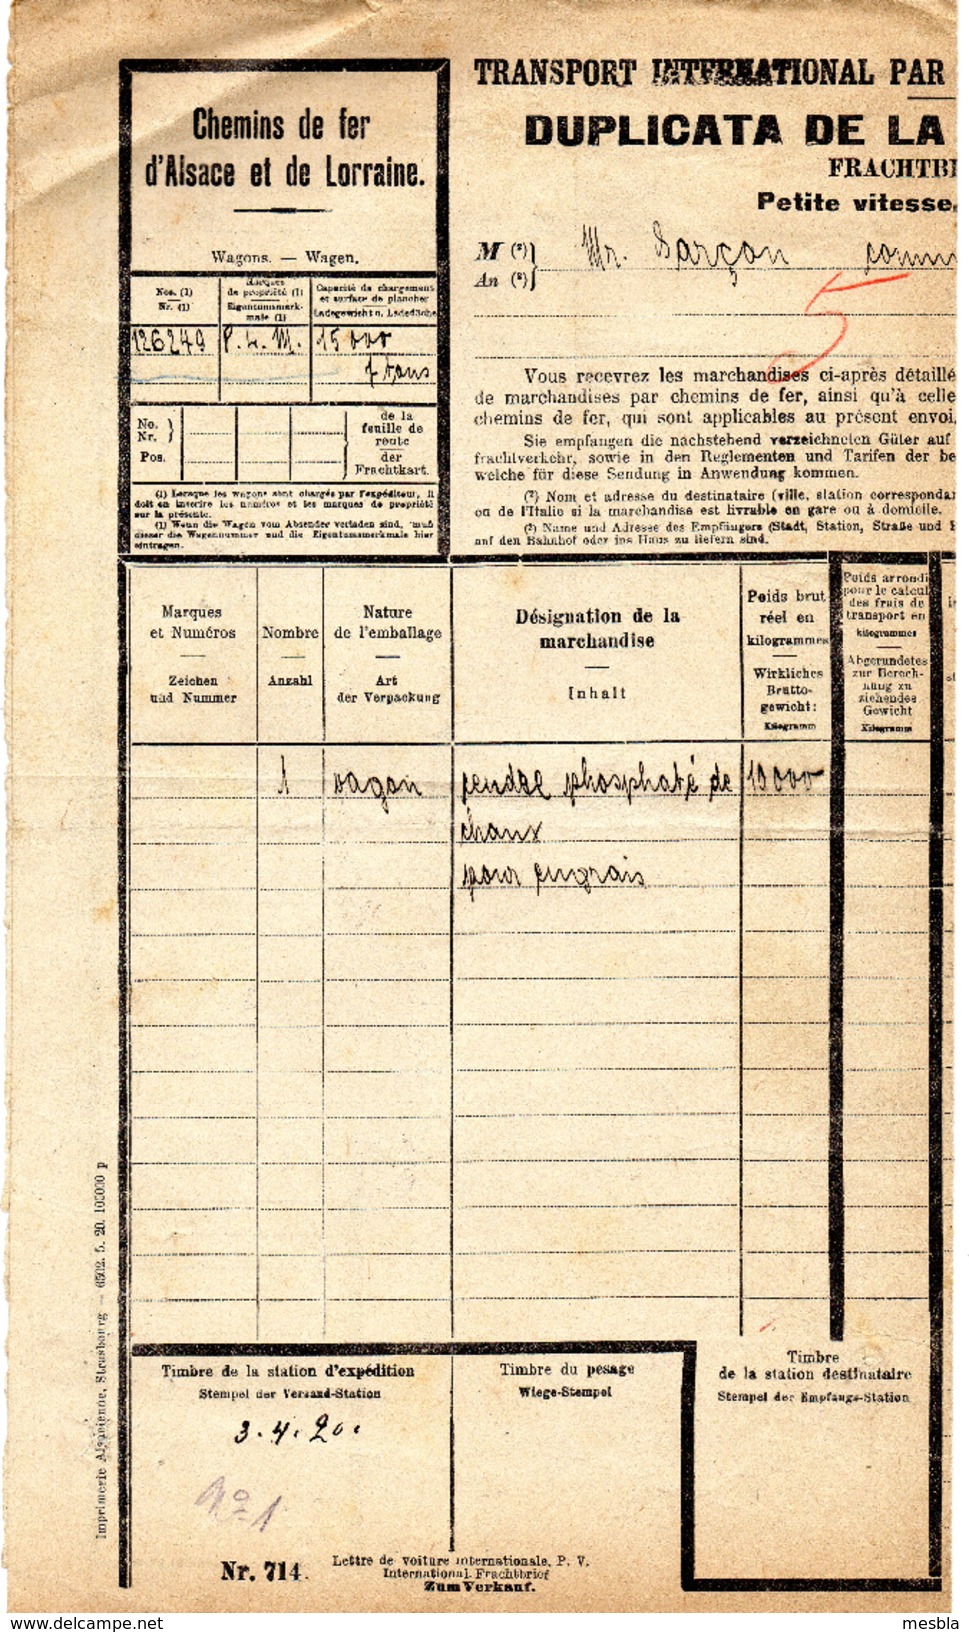 Chemins de fer
d'Alsace et de Lorraine.
Wagons. — Wagen.
Nos. (1)
Nr. (1)
Marques
de propriété (1)
Eigentumsmerk-
male (1)
Capacité de chargement
et surface de plancher
Ladegewicht u. Ladefläche
126249
P. L. M.
15 000
7 tans
No.
Nr.
Pos.
de la
feuille de
route
der
Frachtkart.
(1) Lorsque les wagons sont chargés par l'expéditeur, il
doit en inscrire les numéros et les marques de propriété
sur la présente.
(1) Wenn die Wagen vom Absender verladen sind, muß
dieser die Wagennummer und die Eigentumsmerkmale hier
eintragen.
TRANSPORT INTERNATIONAL PAR
DUPLICATA DE LA
FRACHTBI
Petite vitesse.
M (2)
An (2)
Mr. Garçon
5
Vous recevrez les marchandises ci-après détaillé
de marchandises par chemins de fer, ainsi qu'à celle
chemins de fer, qui sont applicables au présent envoi.
Sie empfangen die nachstehend verzeichneten Güter auf
frachtverkehr, sowie in den Reglementen und Tarifen der be
welche für diese Sendung in Anwendung kommen.
(2) Nom et adresse du destinataire (ville, station correspondan
ou de l'Italie si la marchandise est livrable en gare ou à domicile.
(2) Name und Adresse des Empfängers (Stadt, Station, Straße und
auf den Bahnhof oder ins Haus zu liefern sind.
Marques
et Numéros
Zeichen
und Nummer
Nombre
Anzahl
Nature
de l'emballage
Art
der Verpackung
Désignation de la
marchandise
Inhalt
Poids brut
réel en
kilogrammes
Wirkliches
Brutto-
gewicht:
Kilogramm
Poids arrondi
pour le calcul
des frais de
transport en
kilogrammes
Abgerundetes
zur Berech-
nung zu
ziehendes
Gewicht
Kilogramm
1 vagon phosphaté de 10 000
chaux
pour engrais
Timbre de la station d'expédition
Stempel der Versand-Station
3.4.20.
No 1
Timbre du pesage
Wiege-Stempel
Timbre
de la station destinataire
Stempel der Empfangs-Station
Nr. 714.
Lettre de voiture internationale, P. V.
International. Frachtbrief
Zum Verkauf.
Imprimerie Alsacienne, Strasbourg — 6502. 5. 20. 100000 p
delcampe.net
mesbla